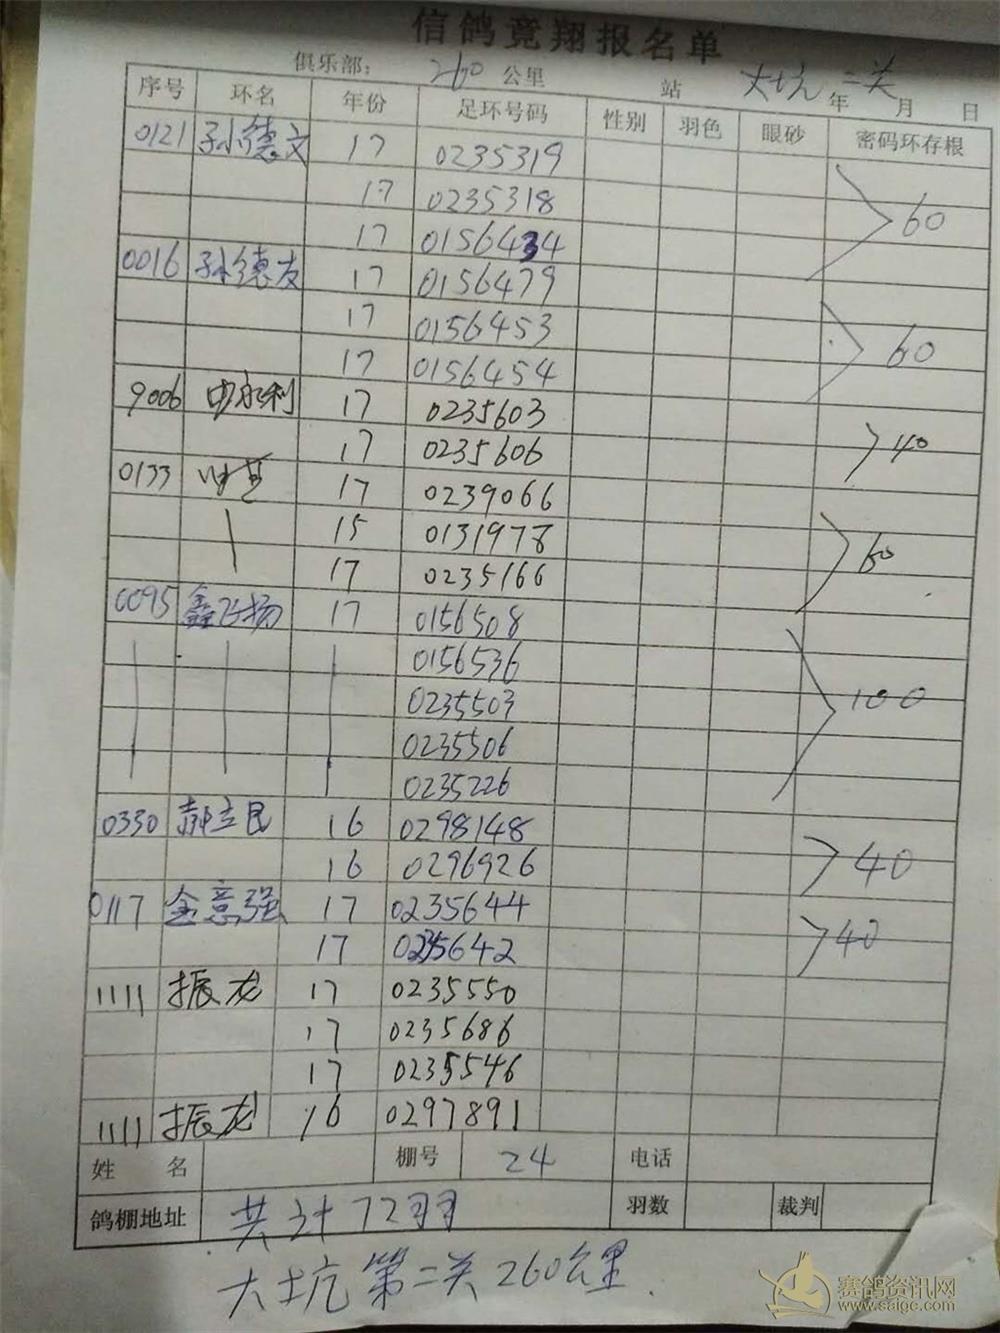 信鸽竞翔报名单
俱乐部: 260 公里 站 大坑 二关 年 月 日
序号 环名 年份 足环号码 性别 羽色 眼砂 密码环存根
0121 孙德文 17 0235319
17 0235318 60
17 0156434
0016 孙德友 17 0156479
17 0156453 60
17 0156454
9006 申永利 17 0235603
17 0235606 40
0133 17 0239066
15 0131978 60
17 0235166
0095 鑫飞扬 17 0156508
0156536
0235503 100
0235506
0235226
0330 郝立民 16 0298148
16 0296926 40
0117 金意强 17 0235644
17 0235642 40
1111 振龙 17 0235550
17 0235686
17 0235546
1111 振龙 16 0297891
姓 名 棚号 24 电话
鸽棚地址 共计72羽 羽数 裁判
大坑第二关260公里
赛鸽资讯网
www.saigc.com